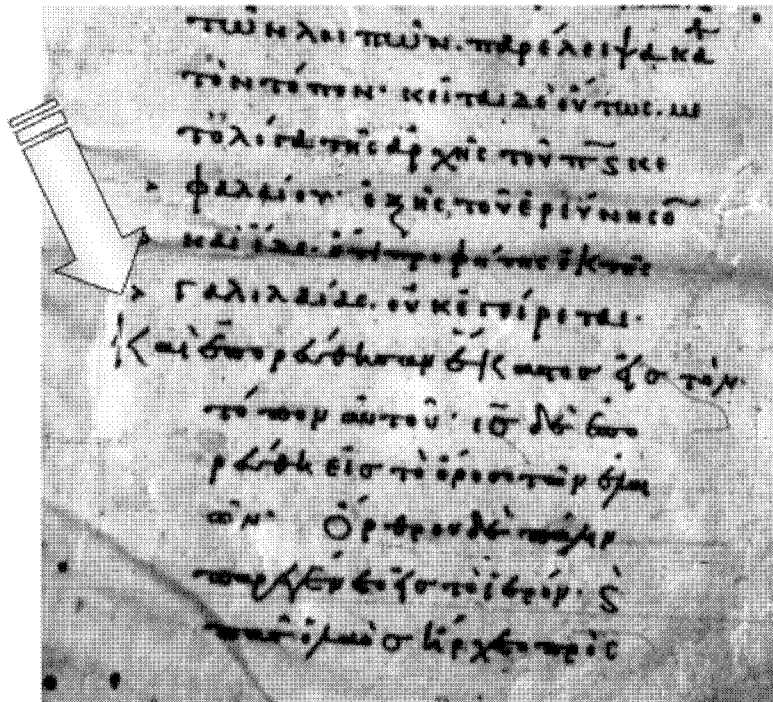 τῶν λοιπῶν. παρέλειψα κᾶ
τὸν τόπον· κεῖται δὲ οὕτως. με
τ ὀλίγα τῆς ἀρχῆς τοῦ π̅ς κε
> φαλαίου· ἑξῆς τοῦ ἐρεύνησο̅
> καὶ ἴδε. ὅτι προφήτης ἐκ τῆς
> Γαλιλαίας. οὐκ ἐγείρεται·
καὶ ἐπορεύθησαν ἕκαστος εἰς τὸν
τόπον αὐτοῦ· ι̅ς δὲ ἐπο
ρεύθη εἰς τὸ ὄρος τῶν ἐλαι
ῶν· Ὄρθρου δὲ πάλιν
παρεγένετο εἰς τὸ ἱερόν· ϗ
πᾶς ὁ λαὸς ἤρχετο πρὸς